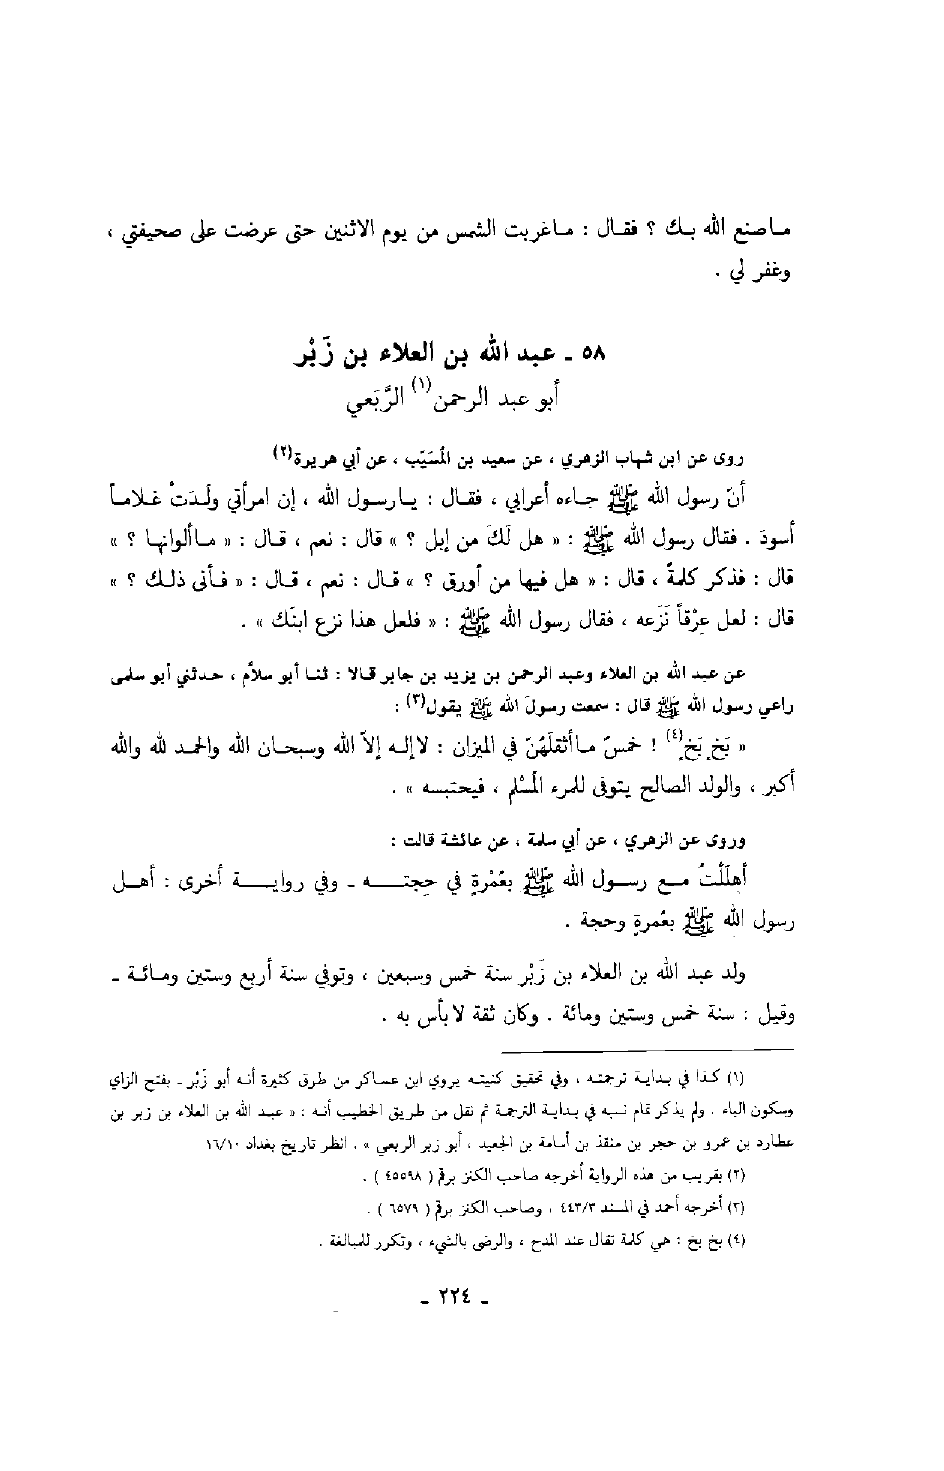 ماصنع الله بك ؟ فقال : ماغربت الشمس من يوم الاثنين حتى عرضت على صحيفتي ،
وغفر لي .
٥٨ ـ عبد الله بن العلاء بن زَبْر
أبو عبد الرحمن(١) الرَّبَعي
روى عن ابن شهاب الزهري ، عن سعيد بن المُسَيّب ، عن أبي هريرة(٢)
أنّ رسول الله ﷺ جاءه أعرابي ، فقال : يارسول الله ، إن امرأتي ولَدَتْ غلاماً
أسودَ . فقال رسول الله ﷺ : « هل لَكَ من إبل ؟ » قال : نعم ، قال : « ماألوانها ؟ »
قال : فذكر كلمةً ، قال : « هل فيها من أورق ؟ » قال : نعم ، قال : « فأنى ذلك ؟ »
قال : لعل عِرْقاً نَزَعه ، فقال رسول الله ﷺ : « فلعل هذا نزع ابنَك » .
عن عبد الله بن العلاء وعبد الرحمن بن يزيد بن جابر قالا : ثنا أبو سلاّم ، حدثني أبو سلمى
راعي رسول الله ﷺ قال : سمعت رسولَ الله ﷺ يقول(٣) :
« بَخٍ بَخٍ(٤) ! خمسٌ ماأثقلَهُنّ في الميزان : لاإله إلاّ الله وسبحان الله والحمد لله والله
أكبر ، والولد الصالح يتوفى للمرء المُسْلم ، فيحتسبه » .
وروى عن الزهري ، عن أبي سلمة ، عن عائشة قالت :
أهلَلْتُ مع رسول الله ﷺ بعُمْرةٍ في حجته ـ وفي رواية أخرى : أهل
رسول الله ﷺ بعُمرةٍ وحجة .
ولد عبد الله بن العلاء بن زَبْر سنة خمس وسبعين ، وتوفي سنة أربع وستين ومائة ـ
وقيل : سنة خمس وستين ومائة . وكان ثقة لابأس به .
(١) كذا في بداية ترجمته ، وفي تحقيق كنيته يروي ابن عساكر من طرق كثيرة أنه أبو زَبْر ـ بفتح الزاي
وسكون الباء . ولم يذكر تمام نسبه في بداية الترجمة ثم نقل من طريق الخطيب أنه : « عبد الله بن العلاء بن زبر بن
عطارد بن عمرو بن حجر بن منقذ بن أسامة بن الجعيد ، أبو زبر الربعي » . انظر تاريخ بغداد ١٦/١٠
(٢) بقريب من هذه الرواية أخرجه صاحب الكنز برقم ( ٤٥٥٩٨ ) .
(٣) أخرجه أحمد في المسند ٤٤٣/٣ ، وصاحب الكنز برقم ( ٦٥٧٩ ) .
(٤) بخ بخ : هي كلمة تقال عند المدح ، والرضى بالشيء ، وتكرر للمبالغة .
ـ ٢٢٤ ـ